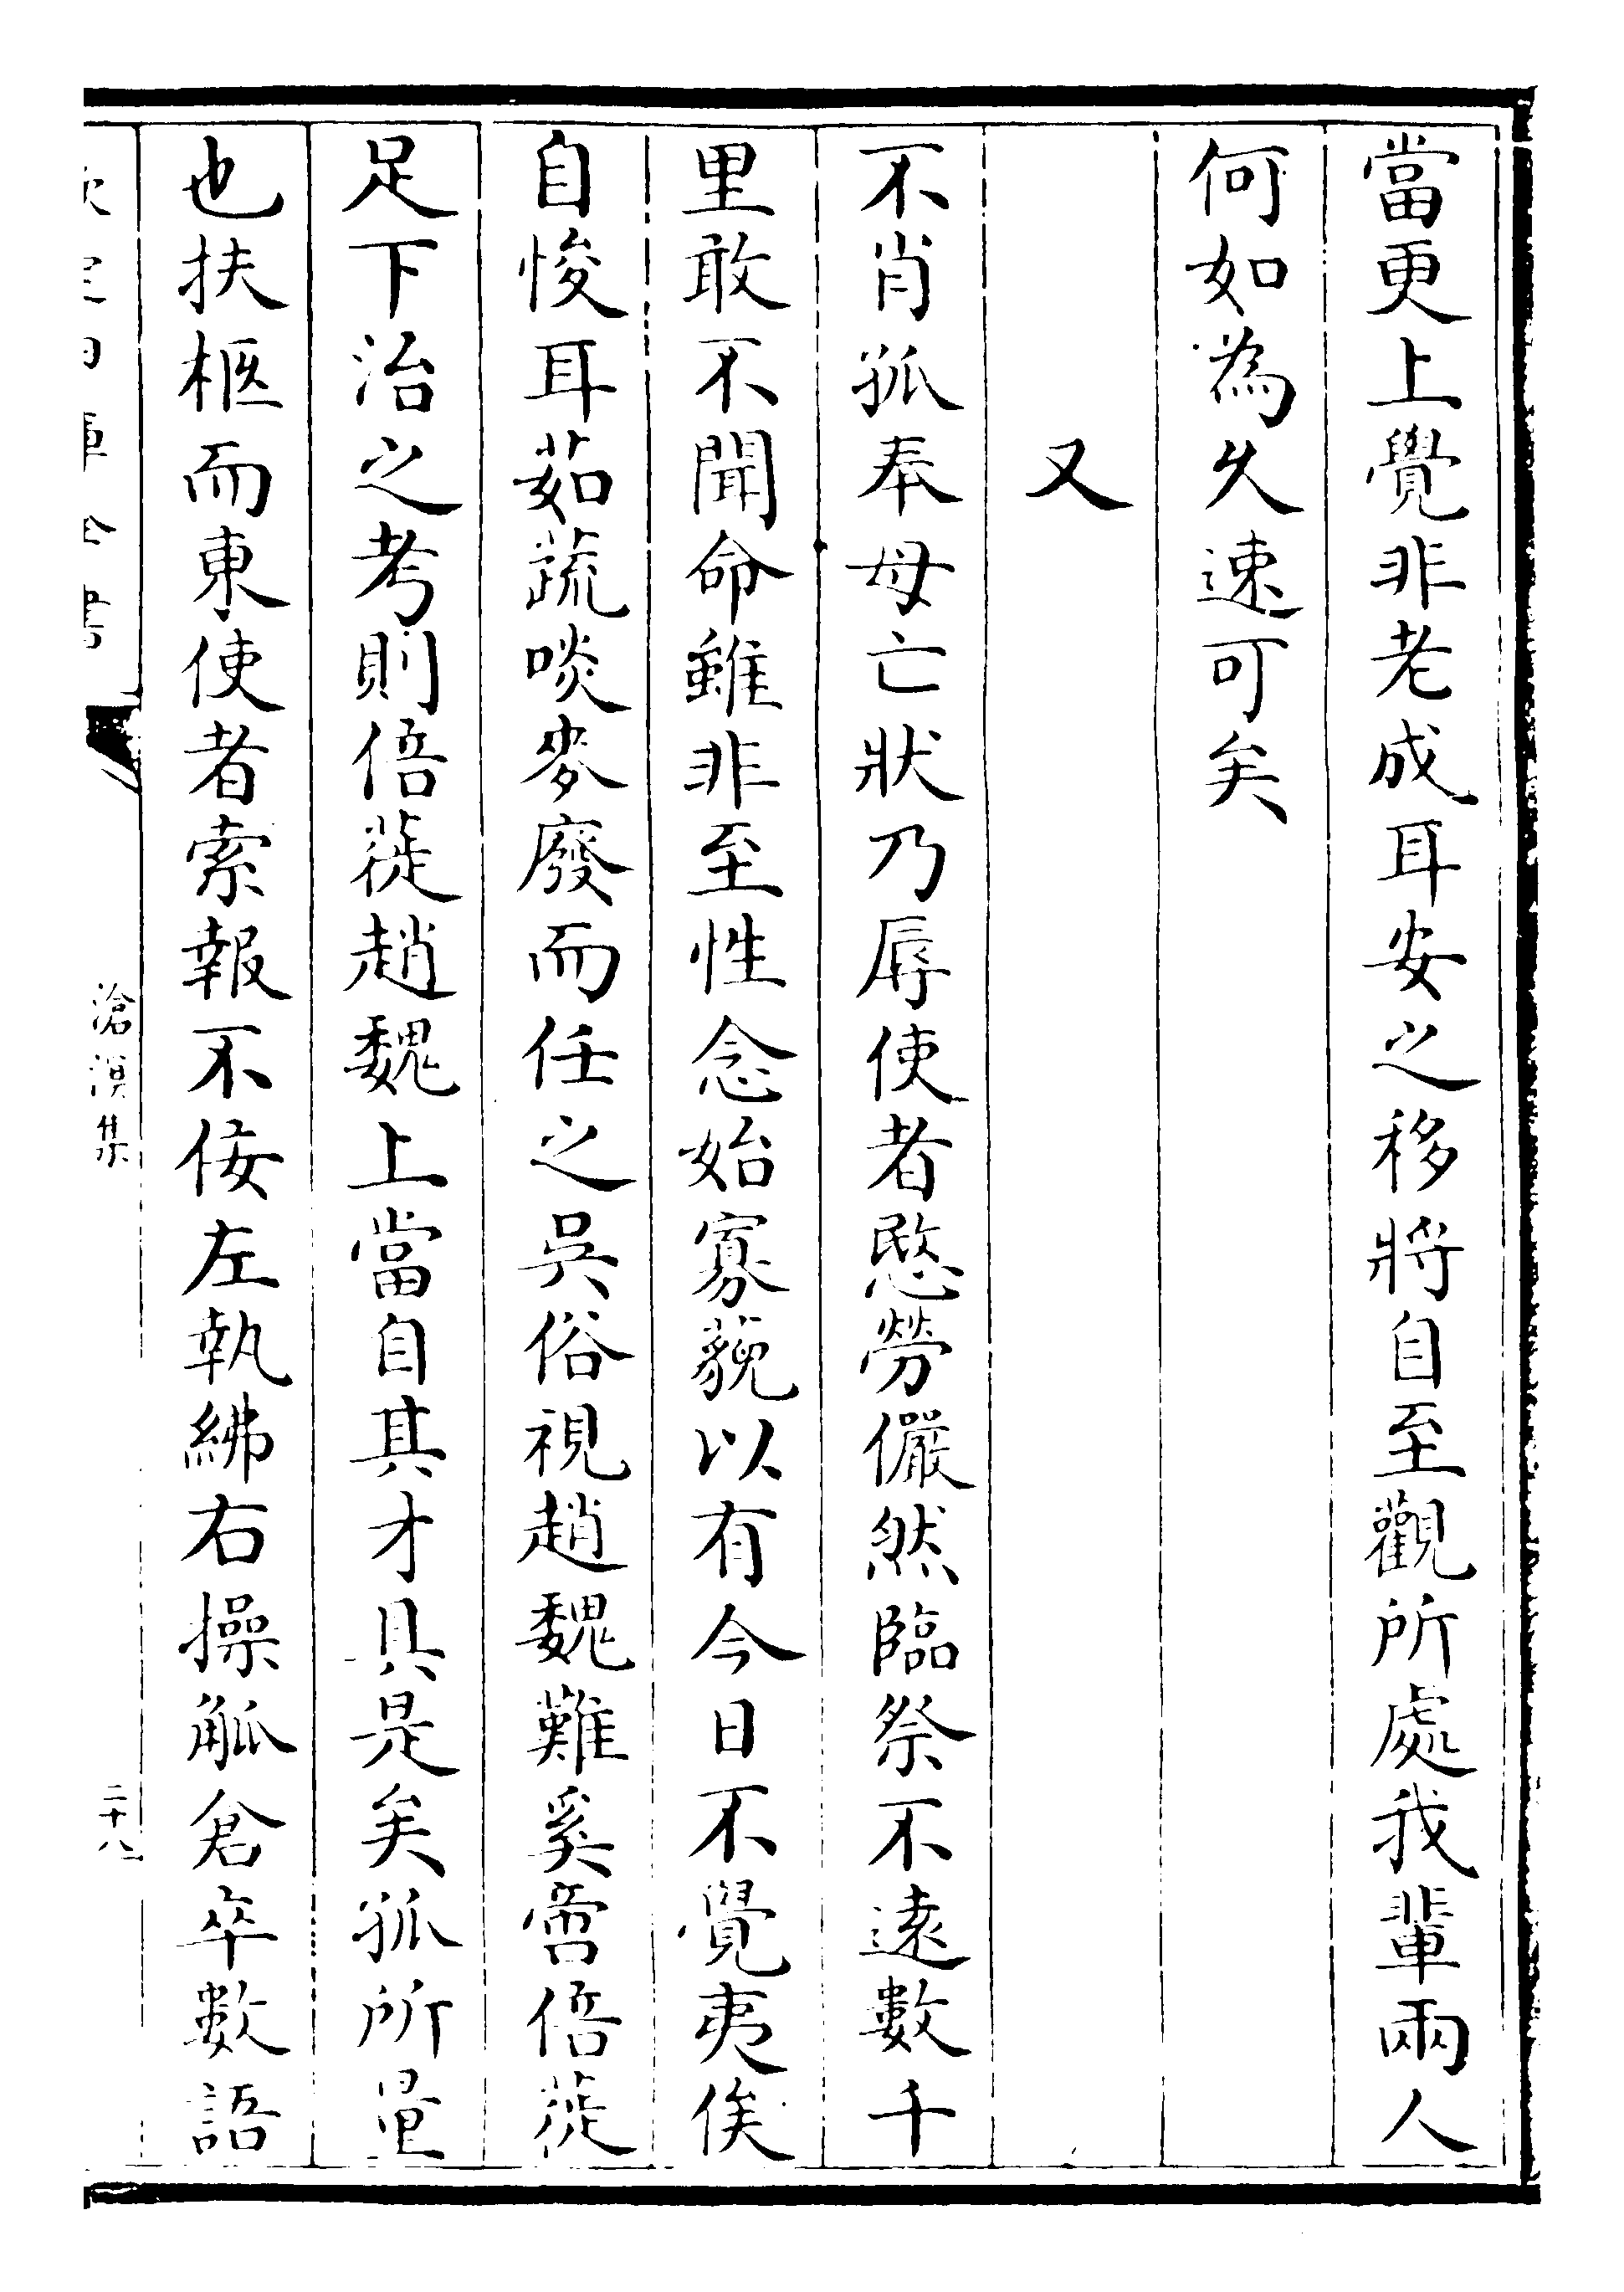 當更上覺非老成耳安之移將自至觀所處我輩兩人
何如為久速可矣
又
不肖孤奉母亡狀乃辱使者愍勞儼然臨祭不逺數千
里敢不聞命雖非至性念始寡藐以有今日不覺夷俟
自悛耳茹蔬啖麥廢而任之吳俗視趙魏難奚啻倍蓰
足下治之考則倍蓰趙魏上當自其才具是矣孤所量
也扶柩而東使者索報不佞左執紼右操觚倉卒數語
欽定四庫全書
滄溟集
二十八